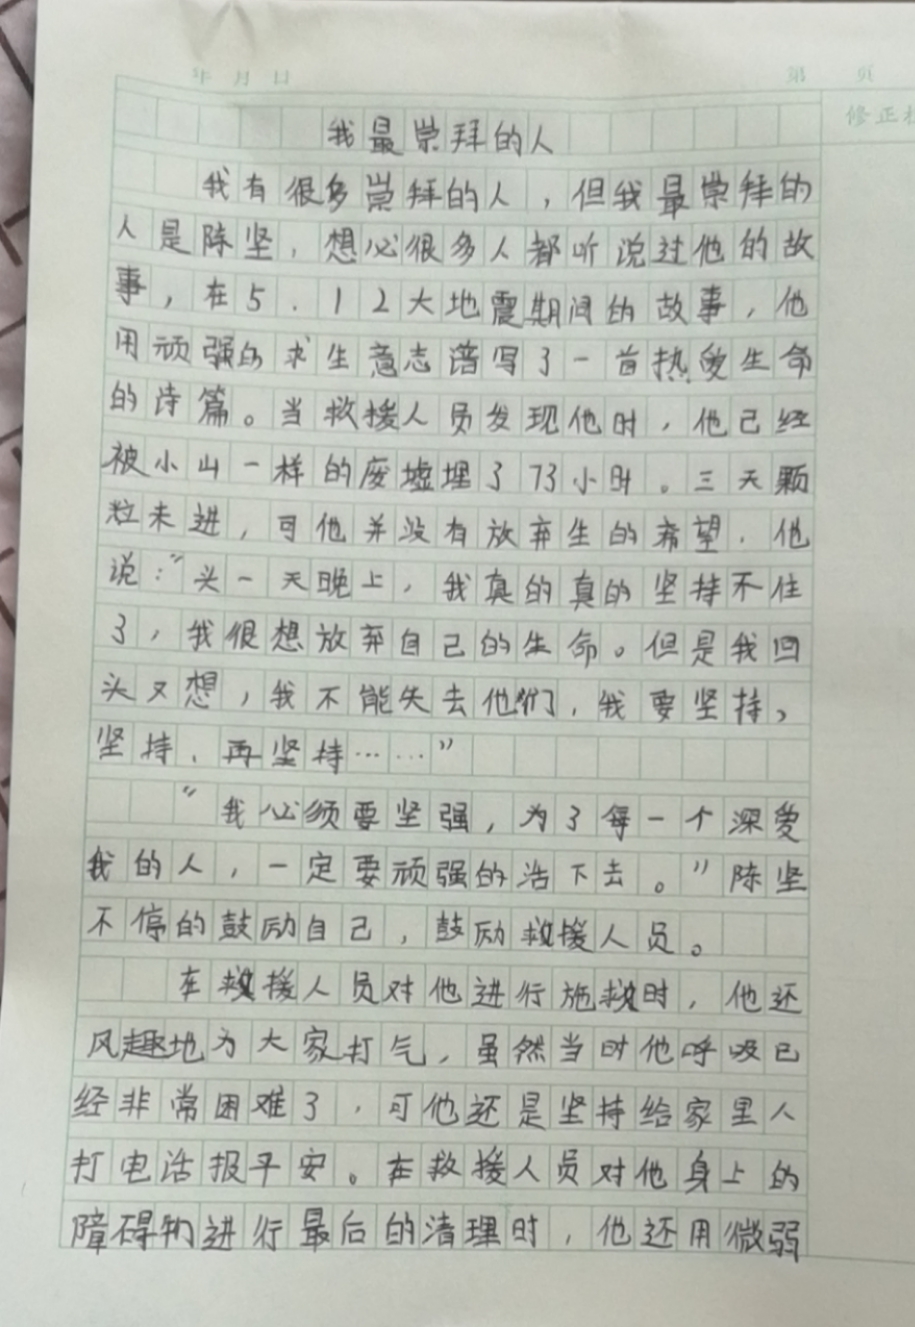 年 月 日
第 页
修正栏
我最崇拜的人
我有很多崇拜的人，但我最崇拜的
人是陈坚，想必很多人都听说过他的故
事，在5.12大地震期间的故事，他
用顽强的求生意志谱写了一首热爱生命
的诗篇。当救援人员发现他时，他已经
被小山一样的废墟埋了73小时。三天颗
粒未进，可他并没有放弃生的希望，他
说："头一天晚上，我真的真的坚持不住
了，我很想放弃自己的生命。但是我回
头又想，我不能失去他们，我要坚持，
坚持、再坚持……"
"我必须要坚强，为了每一个深爱
我的人，一定要顽强的活下去。"陈坚
不停的鼓励自己，鼓励救援人员。
在救援人员对他进行施救时，他还
风趣地为大家打气，虽然当时他呼吸已
经非常困难了，可他还是坚持给家里人
打电话报平安。在救援人员对他身上的
障碍物进行最后的清理时，他还用微弱